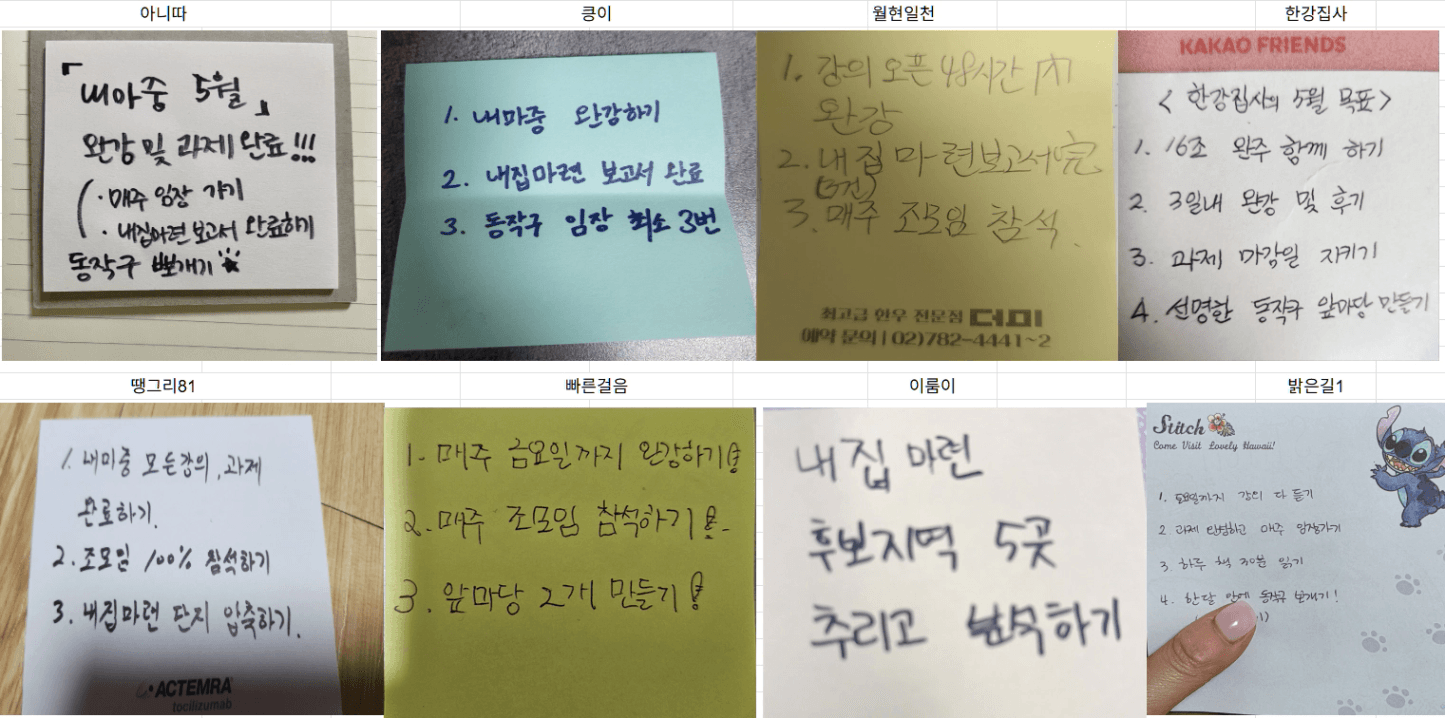 아니따
「내마중 5월」
완강 및 과제 완료!!!
· 매주 임장 가기
· 내집마련 보고서 완료하기
동작구 뽀개기
쿵이
1. 내마중 완강하기
2. 내집마련 보고서 완료
3. 동작구 임장 최소 3번
월현일천
1. 강의 오픈 48시간 内
완강
2. 내집마련보고서 完
(3건)
3. 매주 조모임 참석.
최고급 한우 전문점 더미
예약 문의 | 02)782-4441~2
한강집사
KAKAO FRIENDS
< 한강집사의 5월 목표 >
1. 16조 완주 함께 하기
2. 3일내 완강 및 후기
3. 과제 마감일 지키기
4. 선명한 동작구 앞마당 만들기
땡그리81
1. 내마중 모든강의, 과제
완료하기.
2. 조모임 100% 참석하기
3. 내집마련 단지 압축하기.
ACTEMRA
tocilizumab
빠른걸음
1. 매주 금요일까지 완강하기!
2. 매주 조모임 참석하기!
3. 앞마당 2개 만들기!
이룸이
내집 마련
후보지역 5곳
추리고 분석하기
밝은길1
Stitch
Come Visit Lovely Hawaii!
1. 까지 강의 다 듣기
2. 과제 매주 임장가기
3. 하루 책 30분 읽기
4. 한달 안에 동작구 뽀개기!